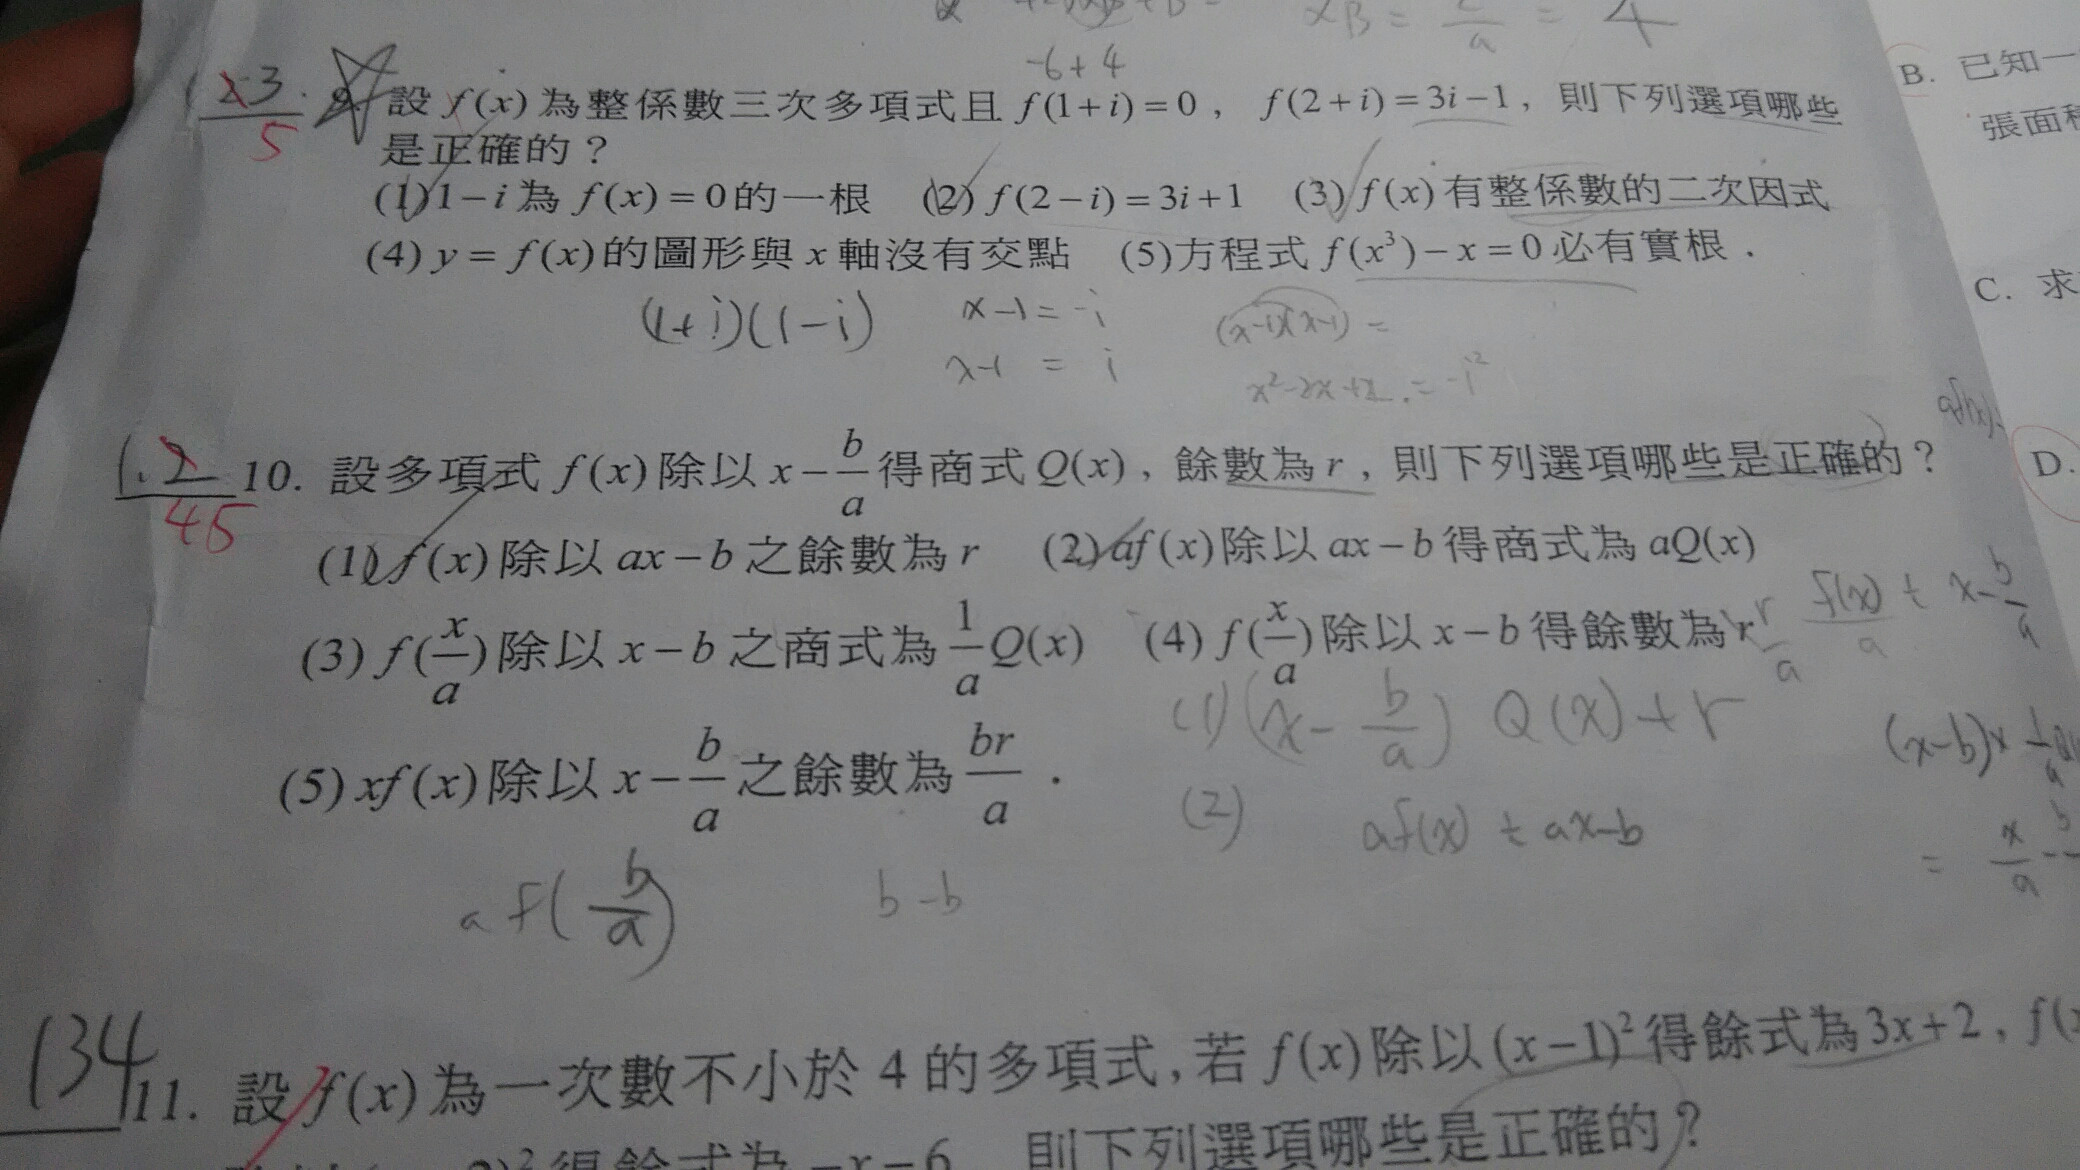 αβ = 2/a = 4
-6+4
3.
5
設 f(x) 為整係數三次多項式且 f(1+i)=0，f(2+i)=3i-1，則下列選項哪些
是正確的？
(1) 1-i 為 f(x)=0 的一根 (2) f(2-i)=3i+1 (3) f(x) 有整係數的二次因式
(4) y=f(x) 的圖形與 x 軸沒有交點 (5) 方程式 f(x³)-x=0 必有實根．
(1+i)(1-i) x-1=-i (x-1)(x-1)=
x-1 = i
B. 已知一
張面積
C. 求
D.
1.2
45
10. 設多項式 f(x) 除以 x-b/a 得商式 Q(x)，餘數為 r，則下列選項哪些是正確的？
(1) f(x) 除以 ax-b 之餘數為 r (2) af(x) 除以 ax-b 得商式為 aQ(x)
(3) f(x/a) 除以 x-b 之商式為 1/a Q(x) (4) f(x/a) 除以 x-b 得餘數為 r
r/a f(x)/a ÷ x-b/a
(5) xf(x) 除以 x-b/a 之餘數為 br/a．
(1) (x-b/a) Q(x)+r
(2) af(x) ÷ ax-b
af(b/a) b-b
134
11. 設 f(x) 為一次數不小於 4 的多項式，若 f(x) 除以 (x-1)² 得餘式為 3x+2，f(x
)² 得餘式為 -x-6 則下列選項哪些是正確的？